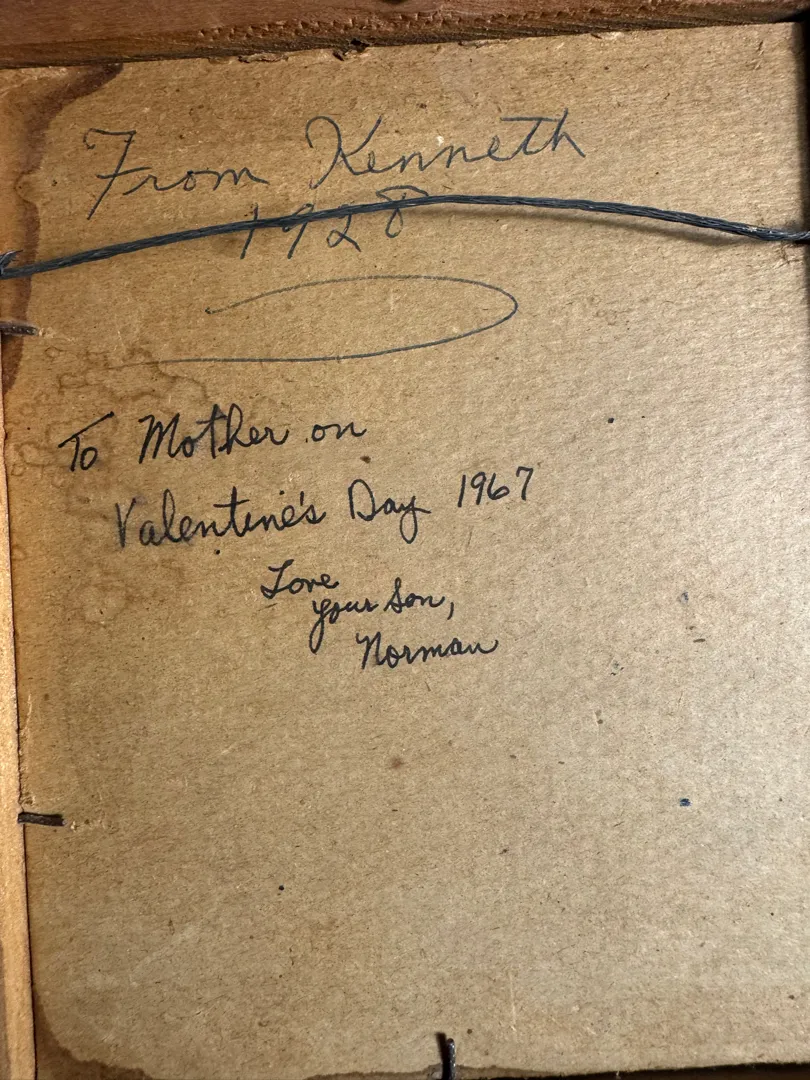 From Kenneth
1928
To Mother on
Valentine's Day 1967
Love
your Son,
Norman